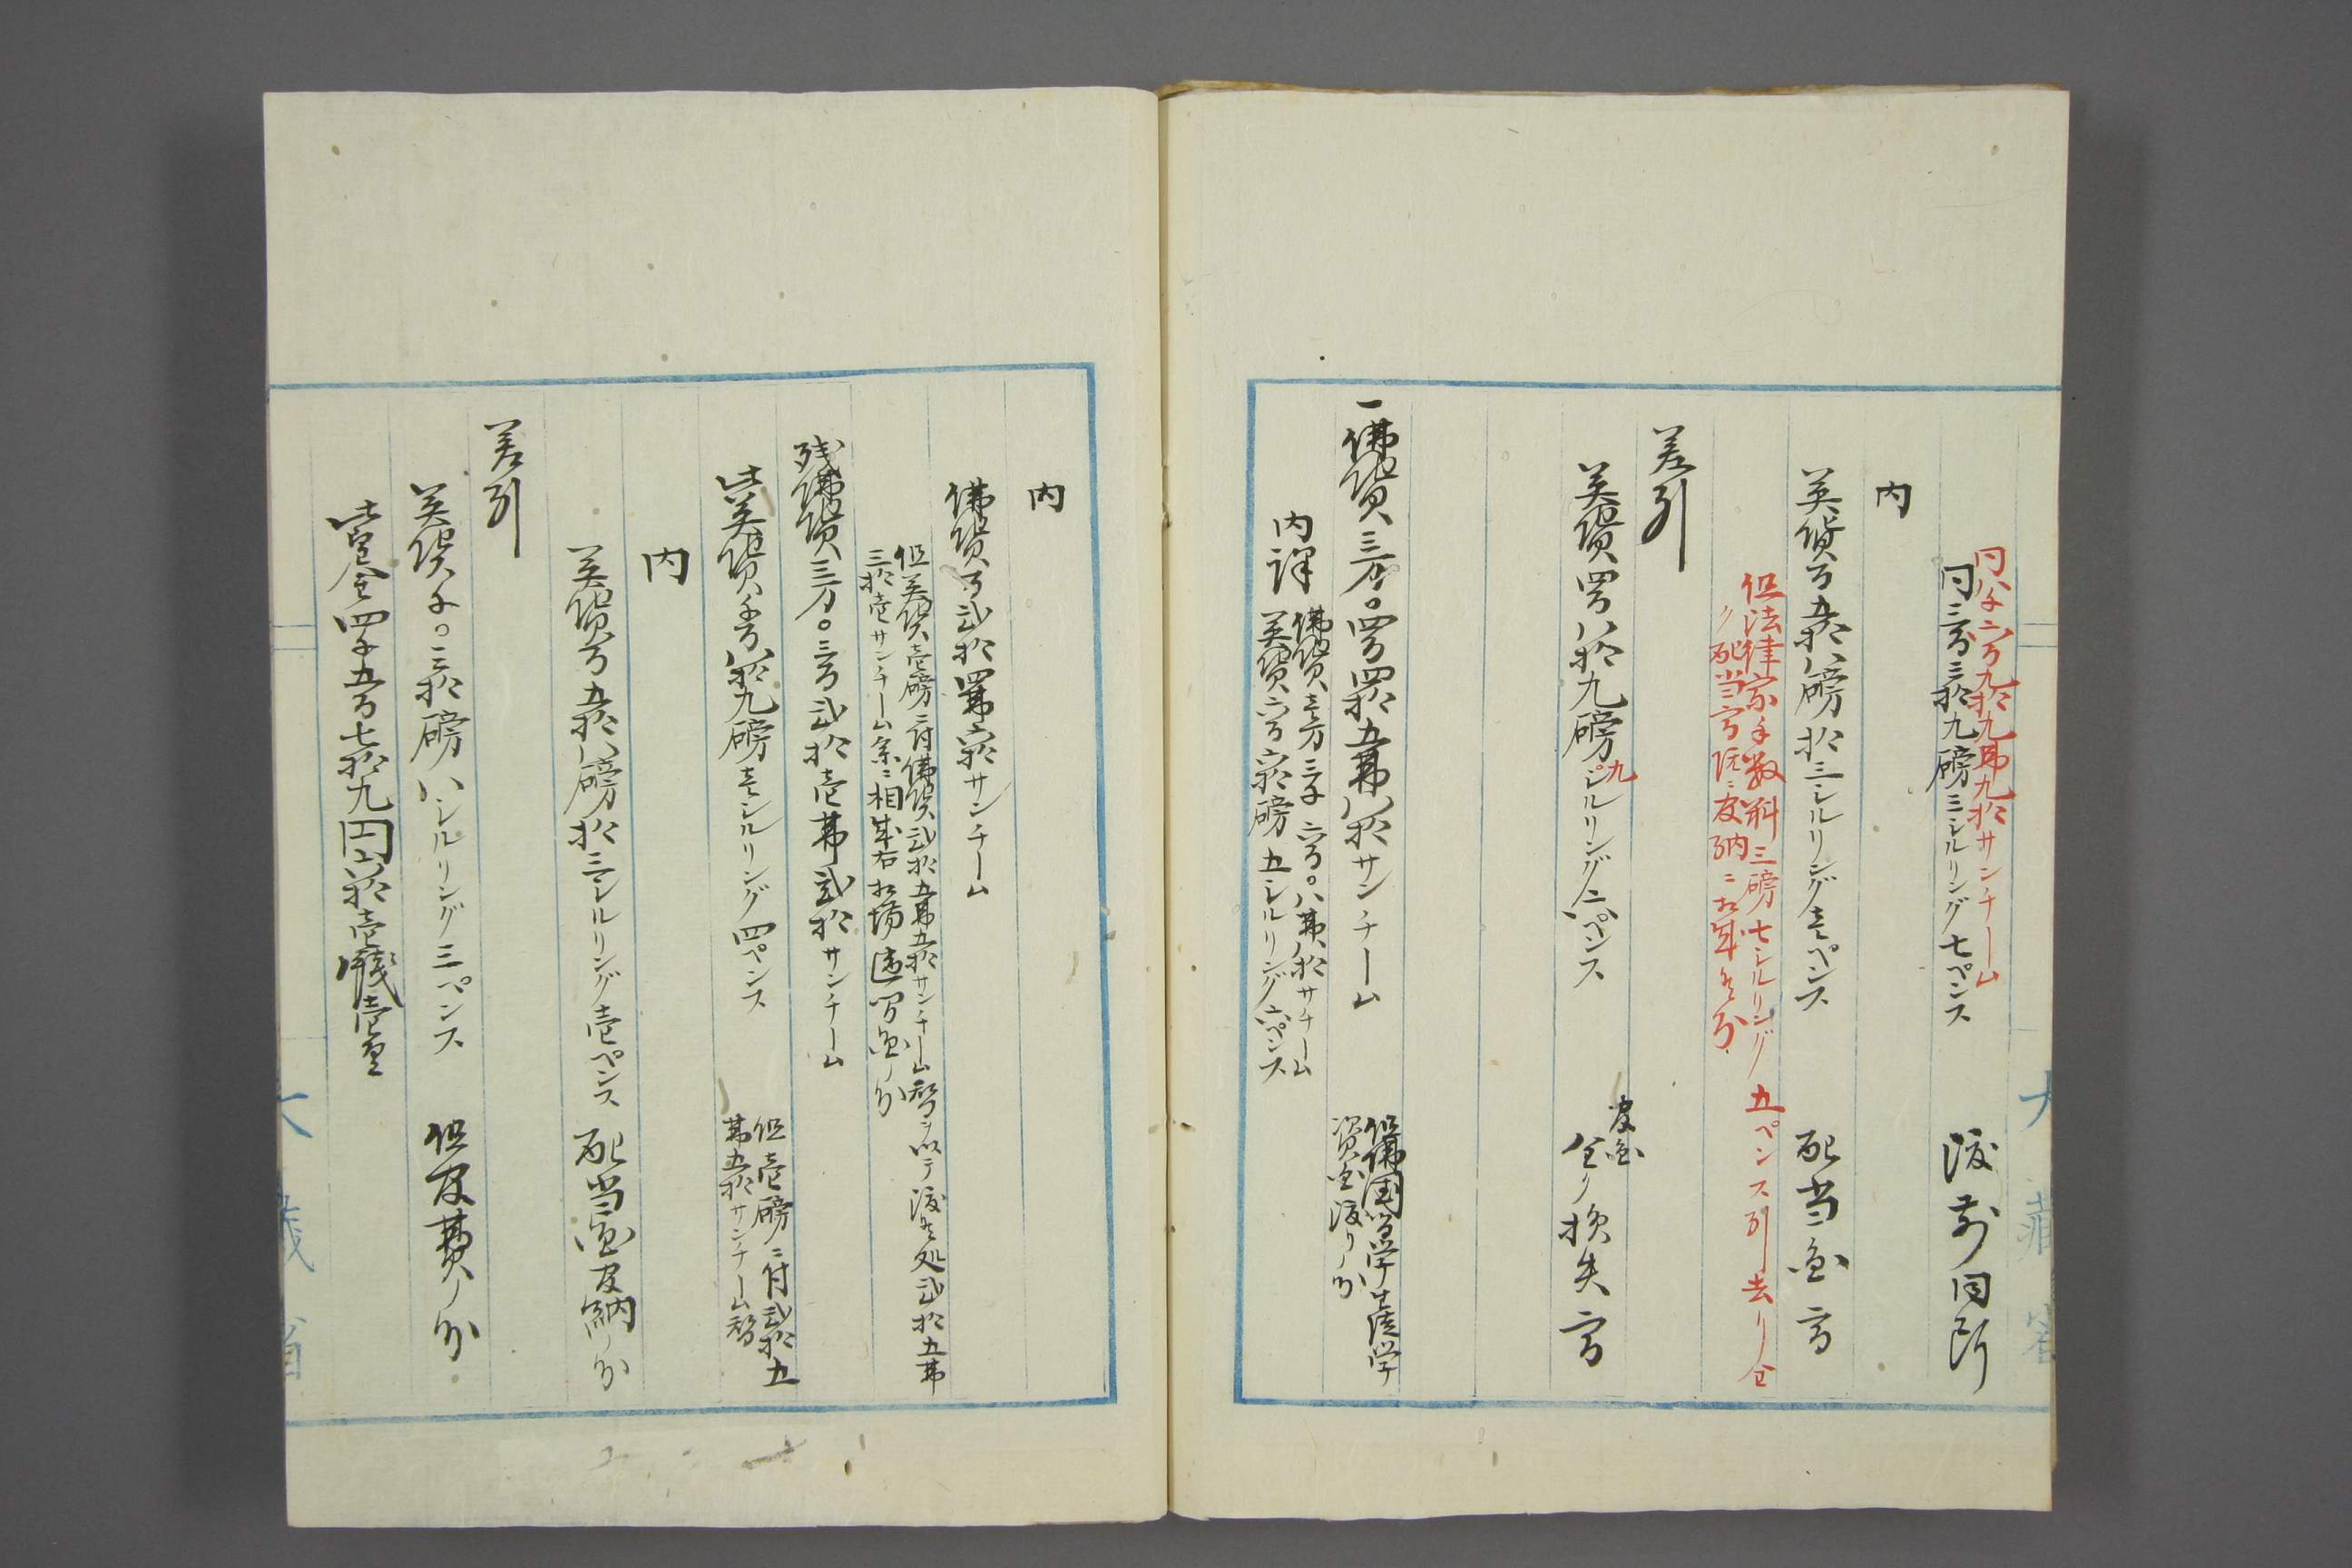 同八千六百九拾九弗九拾サンチーム
同三百三拾九磅三シルリング七ペンス 渡前同断
内
英貨百五拾八磅拾三シルリング壱ペンス 配当金高
但法律家手数料三磅七シルリング五ペンス引去リ全
ク配当高既ニ皈納ニ相成候分
差引
英貨四百八拾九磅九シルリング六ペンス 全ク損失高
皈金
一佛貨三万〇四百四拾五弗八拾サンチーム
但佛国留学生徒学
資金渡リノ分
内譯
佛貨壱万三千六百〇八弗八拾サチーム
英貨六百六拾磅五シルリング六ペンス
大藏省
内
佛貨百弐拾四弗六拾サンチーム
但英貨壱磅ニ付佛貨弐拾五弗五拾サンチーム替ヲ以テ渡候処弐拾五弗
三拾壱サンチーム余ニ相成右相場違間金ノ分
残佛貨三万〇三百弐拾壱弗弐拾サンチーム
此英貨千百八拾九磅壱シルリング四ペンス
但壱磅ニ付弐拾五
弗五拾サンチーム替
内
英貨百五拾八磅拾三シルリング壱ペンス 配当金皈納ノ分
差引
英貨千〇三拾磅八シルリング三ペンス 但皈費ノ分
此金四千五百七拾九円六拾壱錢壱厘
大藏省